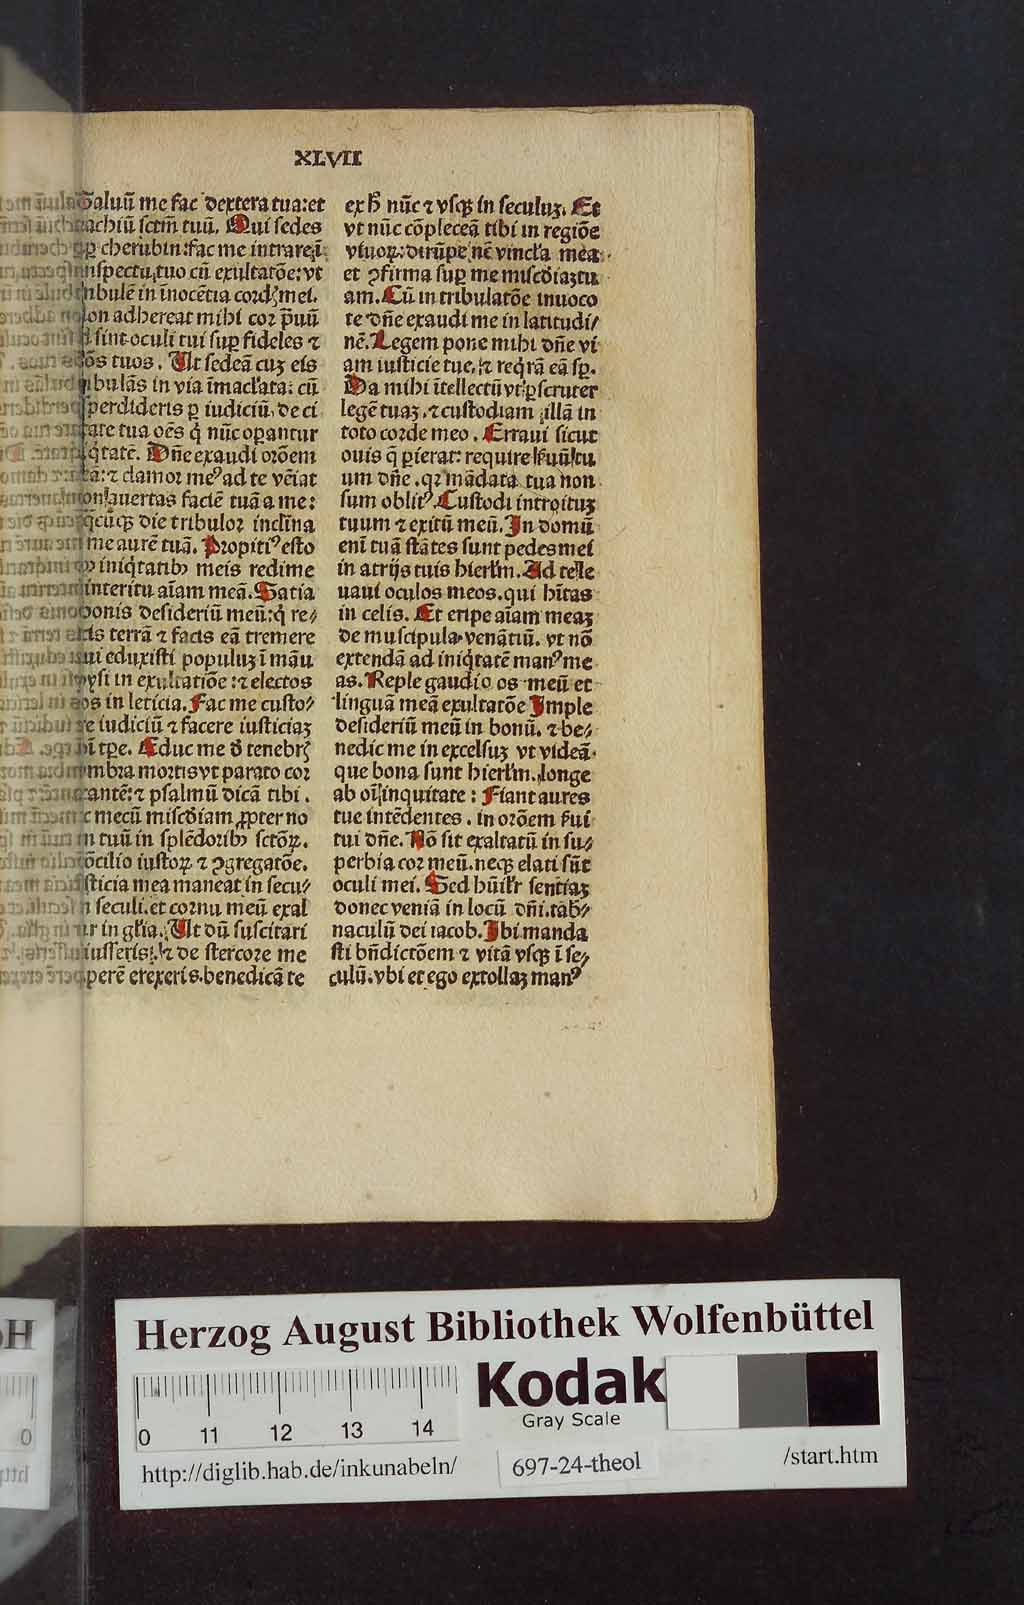 XLVII
Saluū me fac dextera tua: et
brachiū sctm̄ tuū. Qui sedes
cherubin: fac me intrare ī
cōspectu tuo cū exultatōe: vt
in īnocētia cordꝭ mei.
Non adhereat mihi cor p̄uū
sint oculi tui suꝑ fideles ⁊
tuos. Ut sedeā cuꝫ eis
in via īmacl'ata: cū
perdideris ꝑ iudiciū de ci
tate tua oēs q̇ nūc oꝑantur
iniq̇tatē. Dn̄e exaudi orōem
⁊ clamor meꝰ ad te vēiat
Non auertas faciē tuā a me:
die tribulor inclīna
me aurē tuā. Propitiꝰ esto
iniq̇tatibꝫ meis redime
interitu aīam meā. Satia
bonis desideriū meū: q̇ re⸗
terrā ⁊ facis eā tremere
Qui eduxisti populuꝫ ī māu
moysi in exultatiōe: ⁊ electos
tuos in leticia. Fac me custo⸗
dire iudiciū ⁊ facere iusticiaꝫ
tꝑe. Educ me ð tenebrꝭ
vmbra mortis vt parato cor
cantē: ⁊ psalmū dicā tibi.
fac mecū misc̄diam ꝓpter no
men tuū in splēdoribꝫ sctōꝝ.
cōcilio iustoꝝ ⁊ ꝯgregatōe.
iusticia mea maneat in secu⸗
seculi. et cornu meū exal
in gl'ia. Ut dū suscitari
iusseris: ⁊ de stercore me
erexeris. benedicā te
ex h̄ nūc ⁊ vsqꝫ in seculuꝫ. Et
vt nūc cōpleceā tibi in regiōe
viuoꝝ: dirūpe nē vincl'a mea
et ꝯfirma suꝑ me misc̄diaꝫ tu
am. Cū in tribulatōe inuoco
te dn̄e exaudi me in latitudi⸗
nē. Legem pone mihi dn̄e vi
am iusticie tue. ⁊ req̇rā eā sꝑ.
Da mihi ītellectū vt ꝑscruter
legē tuaꝫ. ⁊ custodiam illā in
toto corde meo. Erraui sicut
ouis q̄ ꝑierat: require ẜuū tu
um dn̄e. qꝛ mādata tua non
sum oblitꝰ Custodi introituꝫ
tuum ⁊ exitū meū. In domū
enī tuā stātes sunt pedes mei
in atrijs tuis hierl'm. Ad te le
uaui oculos meos. qui hītas
in celis. Et eripe aīam meaꝫ
de muscipula venātiū. vt nō
extendā ad iniq̇tatē manꝰ me
as. Reple gaudio os meū et
linguā meā exultatōe Imple
desideriū meū in bonū. ⁊ be⸗
nedic me in excelsuꝫ vt videā
que bona sunt hierl'm. longe
ab oī inquitate: Fiant aures
tue intēdentes. in orōem ẜui
tui dn̄e. Nō sit exaltatū in su⸗
perbia cor meū. neqꝫ elati sūt
oculi mei. Sed hūil'r sentiaꝫ
donec veniā in locū dn̄i. tab̄⸗
naculū dei iacob. Ibi manda
sti bn̄dictōem ⁊ vitā vsqꝫ ī se⸗
culū. vbi et ego extollaꝫ manꝰ
Herzog August Bibliothek Wolfenbüttel
Kodak
Gray Scale
0 11 12 13 14
http://diglib.hab.de/inkunabeln/
697-24-theol
/start.htm